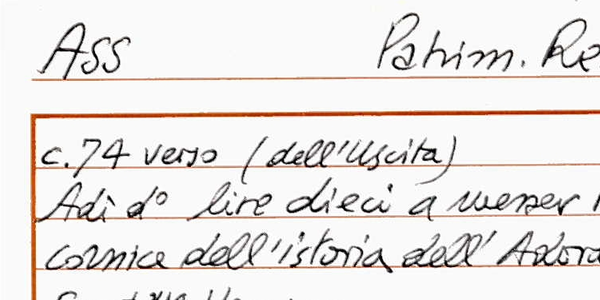 Ass Patrim. Re
c. 74 verso (dell'Uscita)
Adì d° lire dieci a messer
cornice dell'istoria dell'Adora